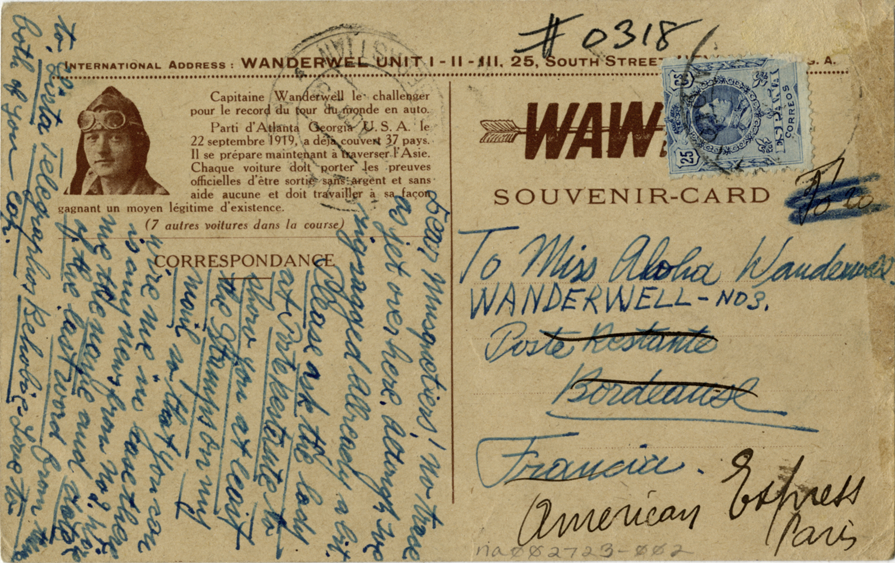 # 0318
INTERNATIONAL ADDRESS : WANDERWEL UNIT I - II - III. 25, SOUTH STREET
Capitaine Wanderwell le challenger
pour le record du tour du monde en auto.
Parti d'Atlanta Georgia U. S. A. le
22 septembre 1919, a déja couvert 37 pays.
Il se prépare maintenant à traverser l'Asie.
Chaque voiture doit porter les preuves
officielles d'être sortie sans argent et sans
aide aucune et doit travailler à sa façon
gagnant un moyen légitime d'existence.
(7 autres voitures dans la course)
CORRESPONDANCE
Dear Musquetiers! no trace
as jet over here, although we
zig zagged allready a bit.
Please ask the lady
at Postpestante to
show you at least
the Stamps on my
mail so that you can
wire me in case there
is any news from no 2. Wire
me the name and date
of the last word from
to Lista Telegraphos Behobie. Love to
both of you
WAW
SOUVENIR-CARD
25
CORREOS
25
To Miss Aloha Wanderwell
WANDERWELL - NO3.
Poste Restante
Bordeause
Francia.
American Express
Paris
na002723-002